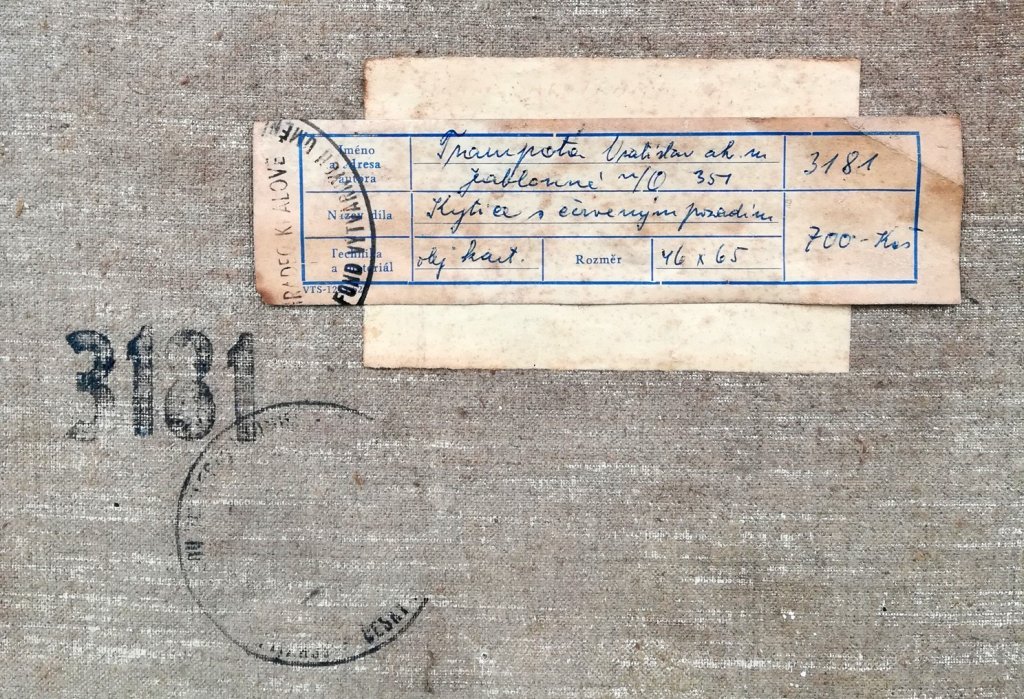 HRADEC KRÁLOVÉ
FOND VÝTVARNÝCH UMĚNÍ
Jméno
a adresa
autora
Trampota Vratislav ak. m
Jablonné n/O 351
3181
Název díla
Kytice s červeným pozadím
700 - Kčs
Technika
a materiál
olej kart.
Rozměr
46 x 65
VTS-12
3181
ČESKÝ